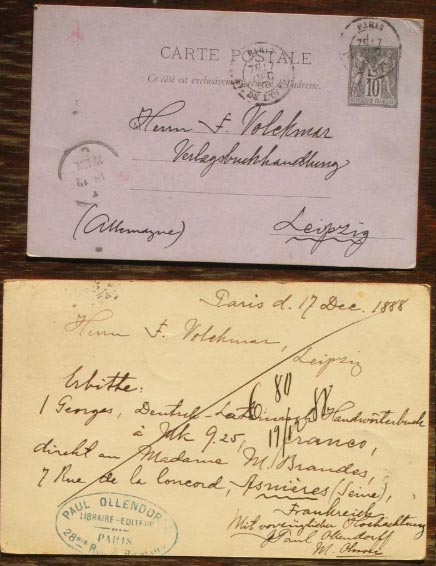 CARTE POSTALE
Ce côté est exclusivement réservé à l'adresse.
PARIS
DEC
PARIS
10
Herrn F. Volckmar
Verlagsbuchhandlung
(Allemagne)
Leipzig
Paris d. 17 Dec. 1888
Herrn F. Volckmar,
Leipzig
Erbitte:
80
1 Georges, Deutsch-Latein. Handwörterbuch
19/12 88
à Mk 9.25, franco,
direkt an Madame M. Brandes,
7 Rue de la Concord, Asnières (Seine),
Frankreich
Mit vorzüglicher Hochachtung
Paul Ollendorff
PAUL OLLENDORFF
LIBRAIRE-EDITEUR
PARIS
28bis